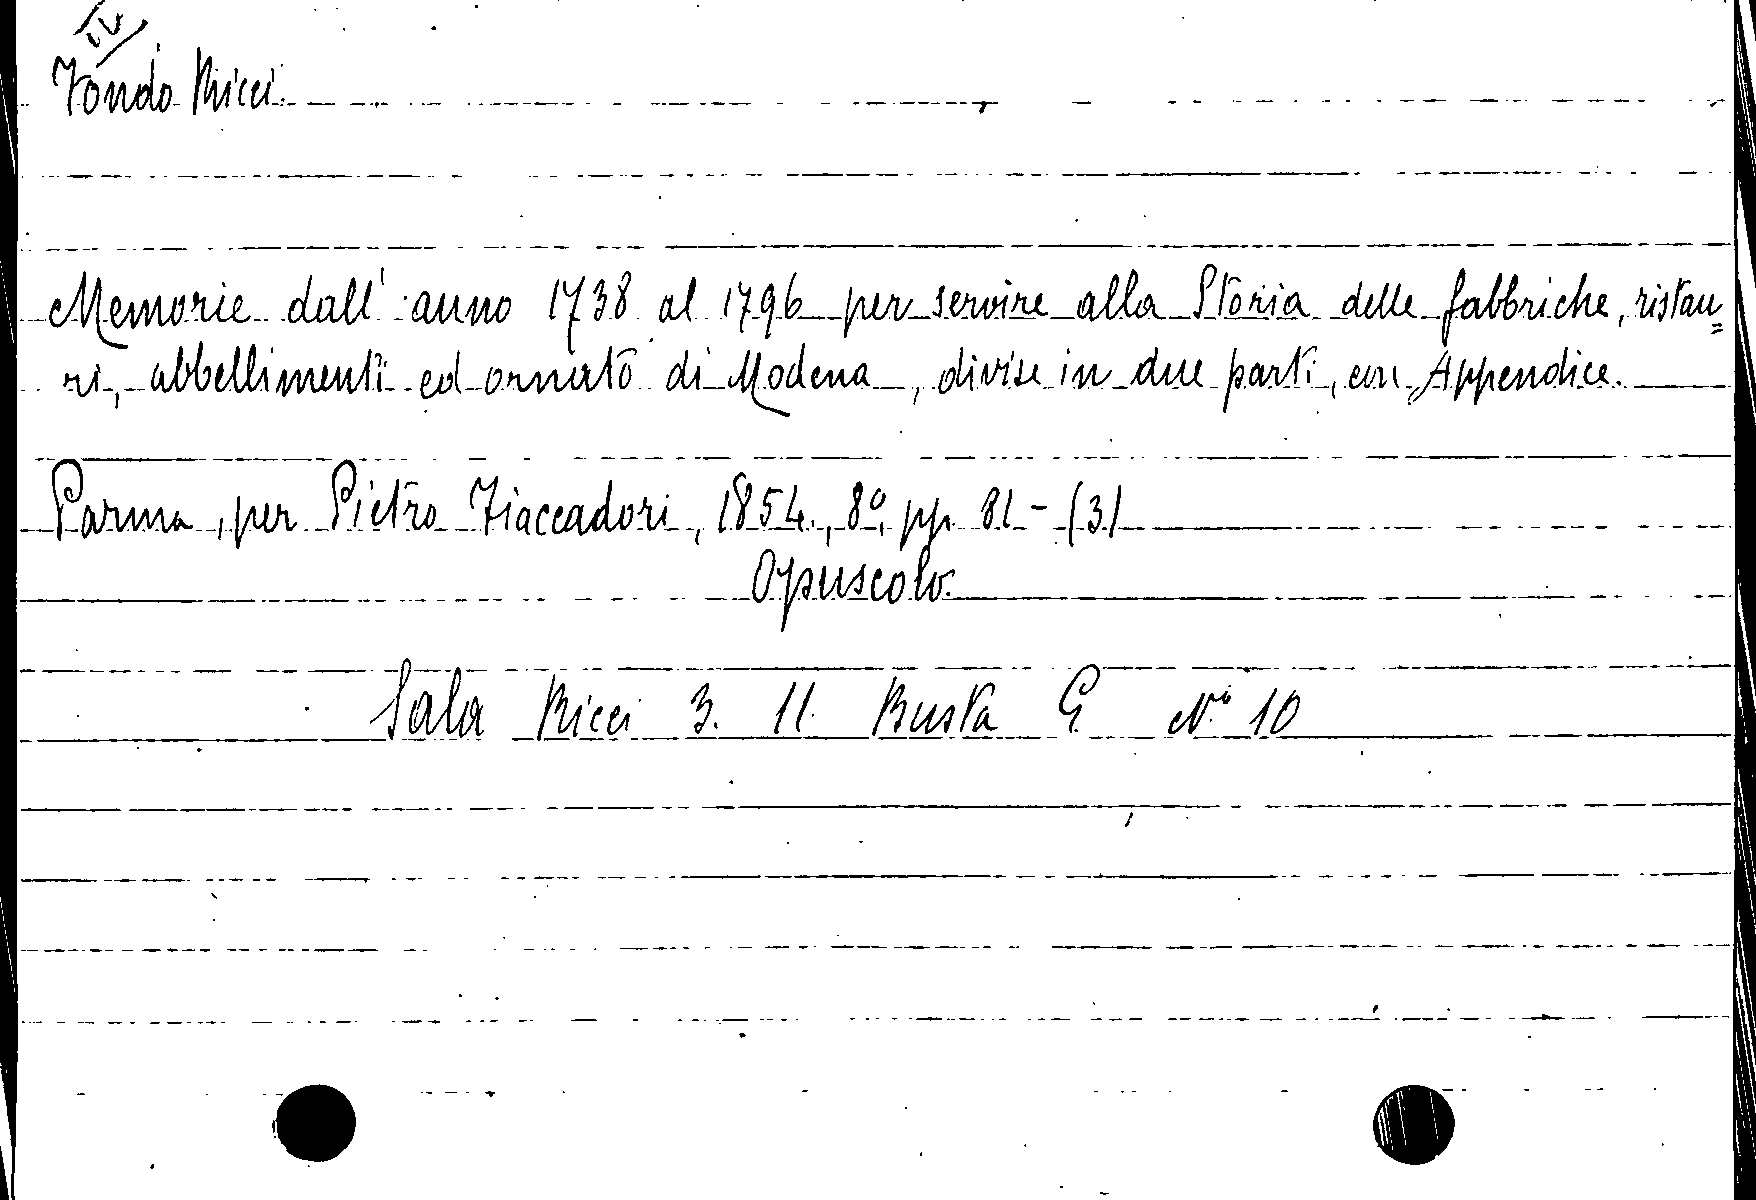 Fondo Ricci.
Memorie dall'anno 1738 al 1796 per servire alla Storia delle fabbriche, ristau=
ri, abbellimenti ed ornato di Modena, divise in due parti, con Appendice.
Parma, per Pietro Fiaccadori, 1854., 8°, pp. 81 - (3)
Opuscolo.
Sala Ricci 3. 11. Busta G N.° 10